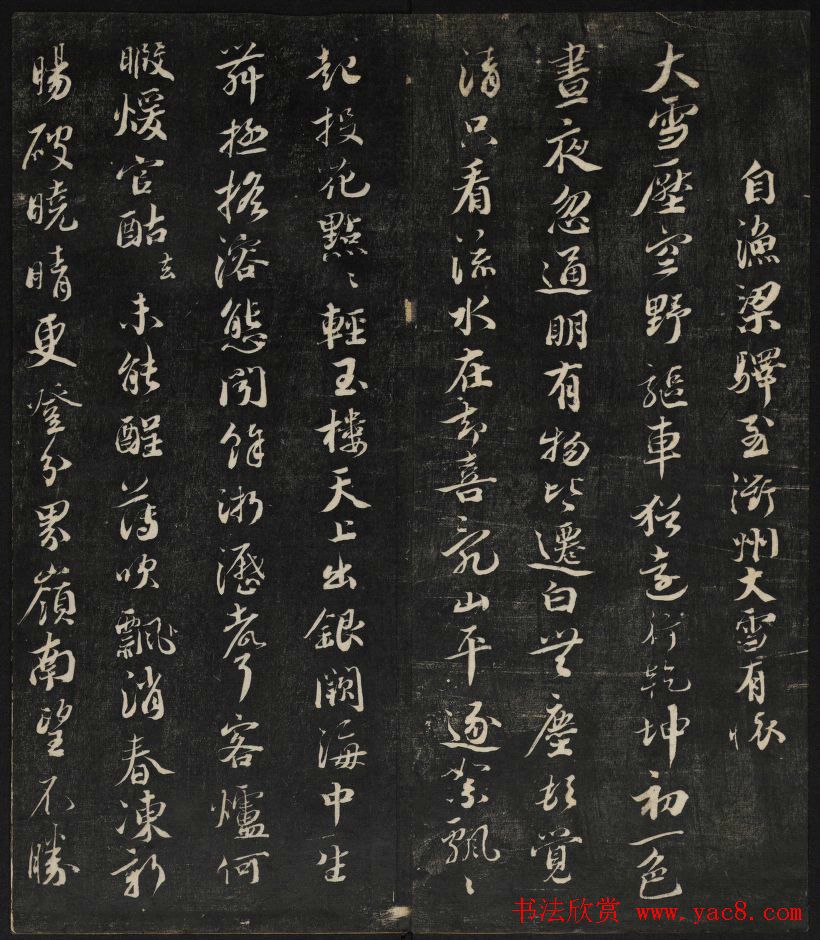 自漁梁驛至衢州大雪有懷
大雪壓空野驅車猶遠行乾坤初一色
晝夜忽通明有物皆遷白無塵頓覺
清只看流水在却喜亂山平逐絮飄〻
起投花點〻輕玉樓天上出銀闕海中生
舞極搖溶態聞餘淅瀝聲客爐何
暇煖官酤去未能醒薄吹飄消春凍新
暘破曉晴更登分界嶺南望不勝
书法欣赏 www.yac8.com